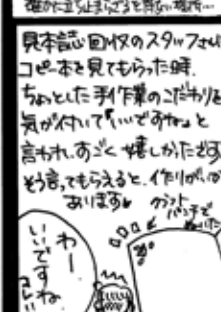 見本誌回収のスタッフさんに
コピー本を見てもらった時、
ちょっとした手作業のこだわりを
気が付いて「いいですねっ」と
言われ、すごく嬉しかったです
そう言ってもらえると、作りがいが
あります
クラフト
パンチで
わー
いいですね